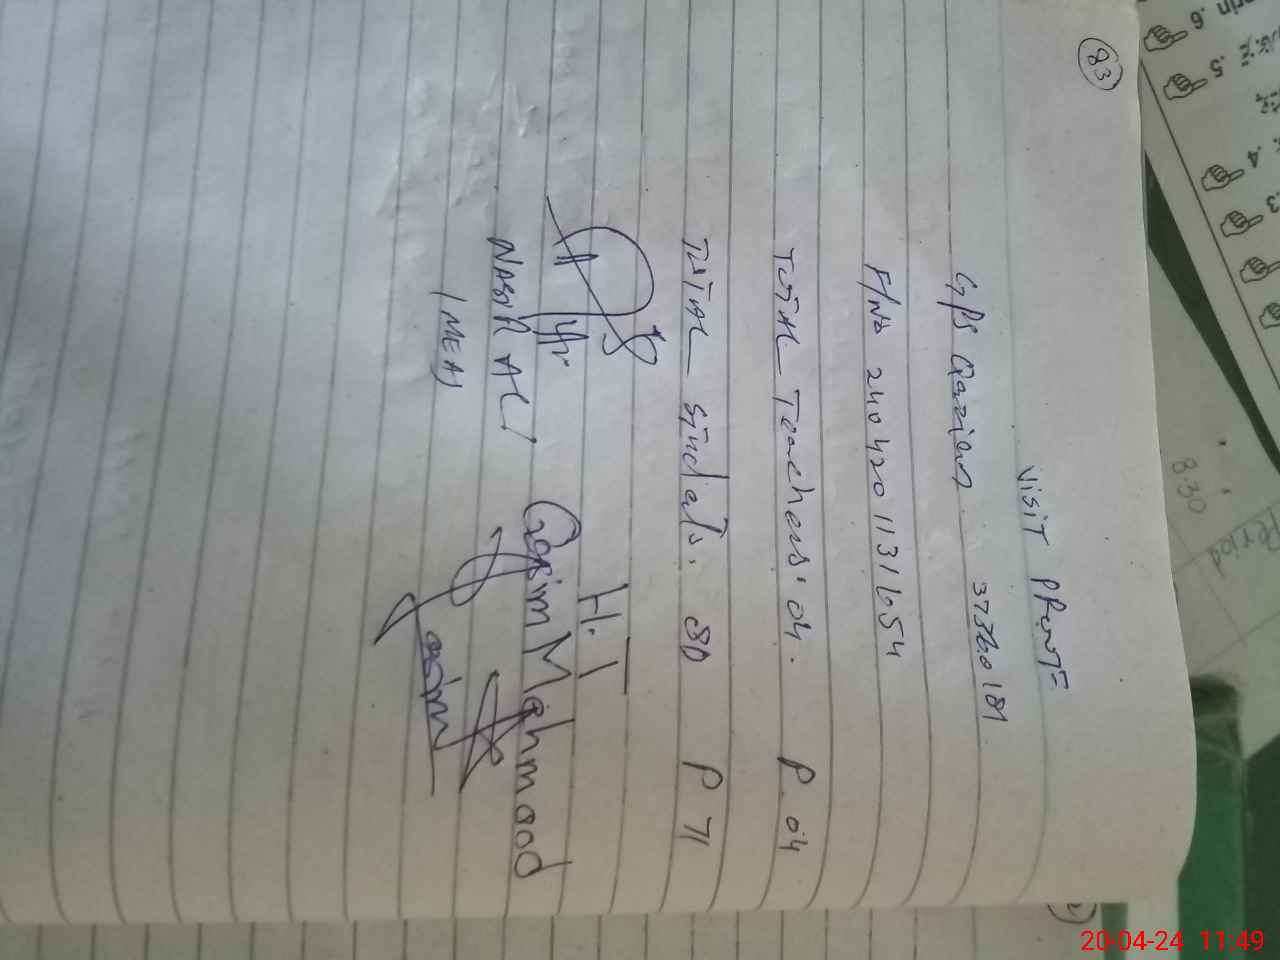 83
VISIT
G/PS Qazian 37360181
F/No 2404201131654
TOTAL Teachers: 04. P 04
TOTAL 80 P 71
NASIR ALI
(MEA)
H.T
Qasim Mahmood
Qasim
8:30
Period
20-04-24 11:49